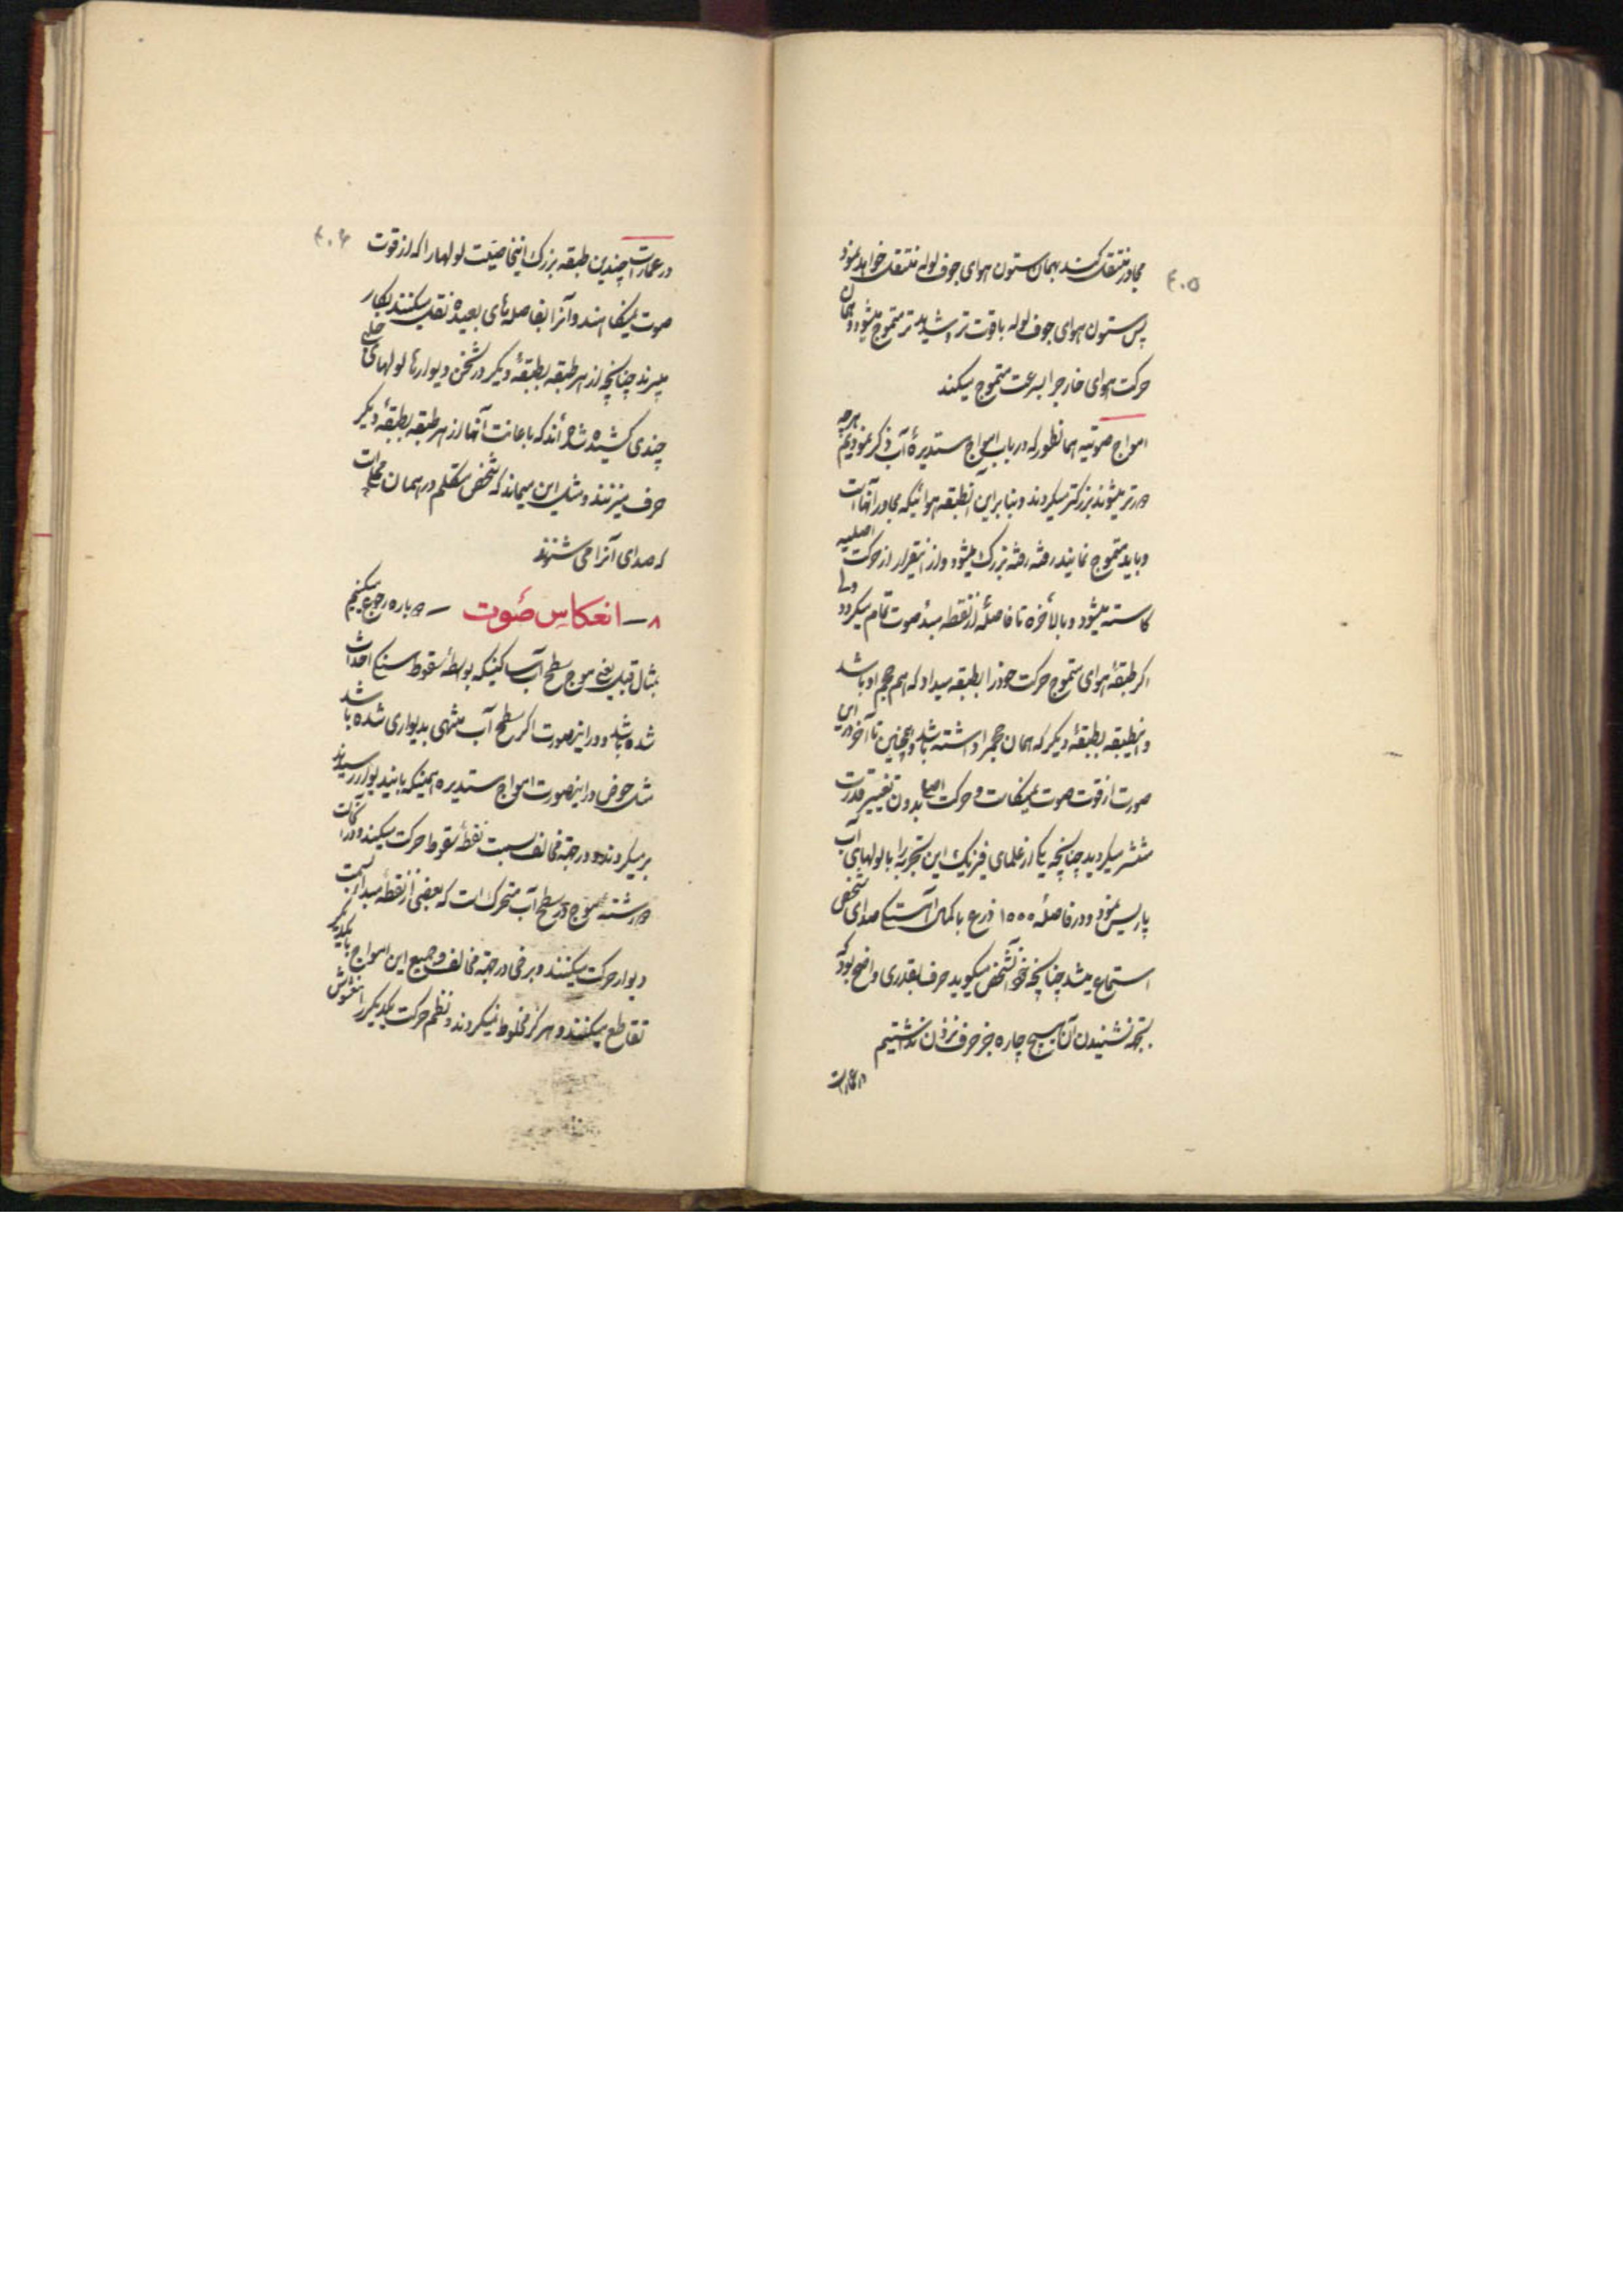 ۴۰۵
مجاور منتقل کند بهمان ستون هوای جوف لوله منتقل خواهد نمود
پس ستون هوای جوف لوله باقوت تر و شدیدتر متموج میشود و همان
حرکت هوای خارجرا بسرعت متموج میکند
امواج صوتیه همانطور که در باب امواج مستدیرهٔ آب ذکر نمودیم هرچه
دورتر میشوند بزرکتر میکردند و بنابراین طبقه هوائیکه مجاور آنها است
و باید متموج نمایند رفته رفته بزرک میشود و از اینقرار از حرکت اصلیه
کاسته میشود و بالأخره تا فاصلهٔ از نقطه مبدٔ صوت تمام میکردد ولی
اکر طبقهٔ هوای متموج حرکت خود را بطبقه میداد که هم حجم او باشد
و اینطبقه بطبقهٔ دیکر که همان حجم را داشته باشد و همچنین تا آخر در این
صورت از قوت صوت نمیکاست و حرکت اصلی بدون تغییر قدرت
منتشر میکردید چنانچه یکی از علمای فیزیک این تجربه را با لولهای آب
پاریس نمود و در فاصلهٔ ۱۰۰۰ ذرع با کمال آهستکی صدای شخص
استماع میشد چنانچه خود آنشخص میکوید حرف بقدری واضح بود که
بجهة نشنیدن آن هیچ چاره جز حرف نزدن نداشتیم
در عمارت
۴۰۶
در عمارت چندین طبقه بزرک اینخاصیت لولها را که از قوت
صوت نمیکاهند و آنرا بفاصله های بعیده نقل میکنند بکار
میبرند چنانچه از هر طبقه بطبقهٔ دیکر در ثخن دیوارها لولهای
چندی کشیده شده اند که باعانت آنها از هر طبقه بطبقهٔ دیکر
حرف میزنند و مثل این میماند که شخص متکلم در همان محل است
که صدای آنرا می شنوند
۸ – انعکاس صوت – دوباره رجوع میکنیم
بمثال قبل یعنی موج سطح آب ساکنیکه بواسطهٔ سقوط سنکی احداث
شده باشد و در اینصورت اکر سطح آب منتهی بدیواری شده باشد
مثل حوض در اینصورت امواج مستدیره همینکه باین دیوار رسیدند
بر میکردند و در جهة مخالف بسمت نقطهٔ سقوط حرکت میکنند و در آنحالت
دو رشته موج در سطح آب متحرک است که بعضی از نقطه مبدأ بسمت
دیوار حرکت میکنند و برخی در جهة مخالف و جمیع این امواج با یکدیکر
تقاطع میکنند و هرکز مخلوط نمیکردند و نظم حرکت یکدیکر را مغشوش